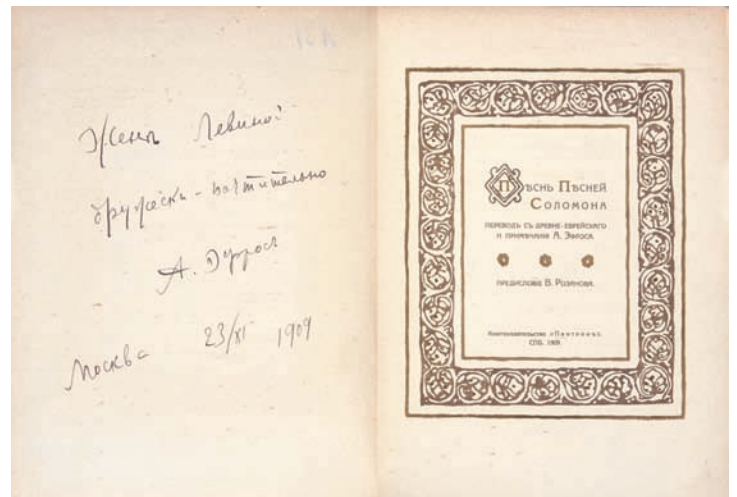 Женѣ Левиной
дружески-почтительно
А. Эфросъ
Москва 23/XI 1909
Пѣснь Пѣсней
Соломона
переводъ съ древне-еврейскаго
и примѣчанія А. Эфроса
предисловіе В. Розанова.
Книгоиздательство «Пантеонъ».
СПб. 1909.